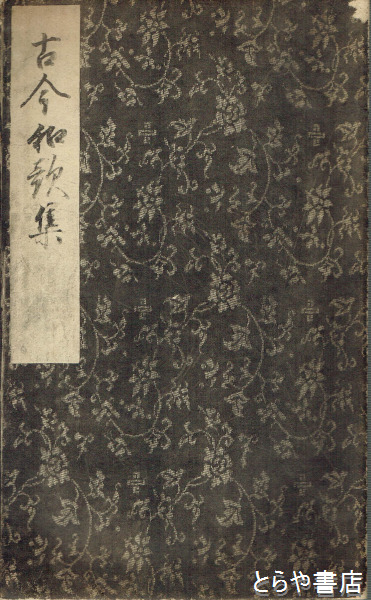 古今和歌集
とらや書店